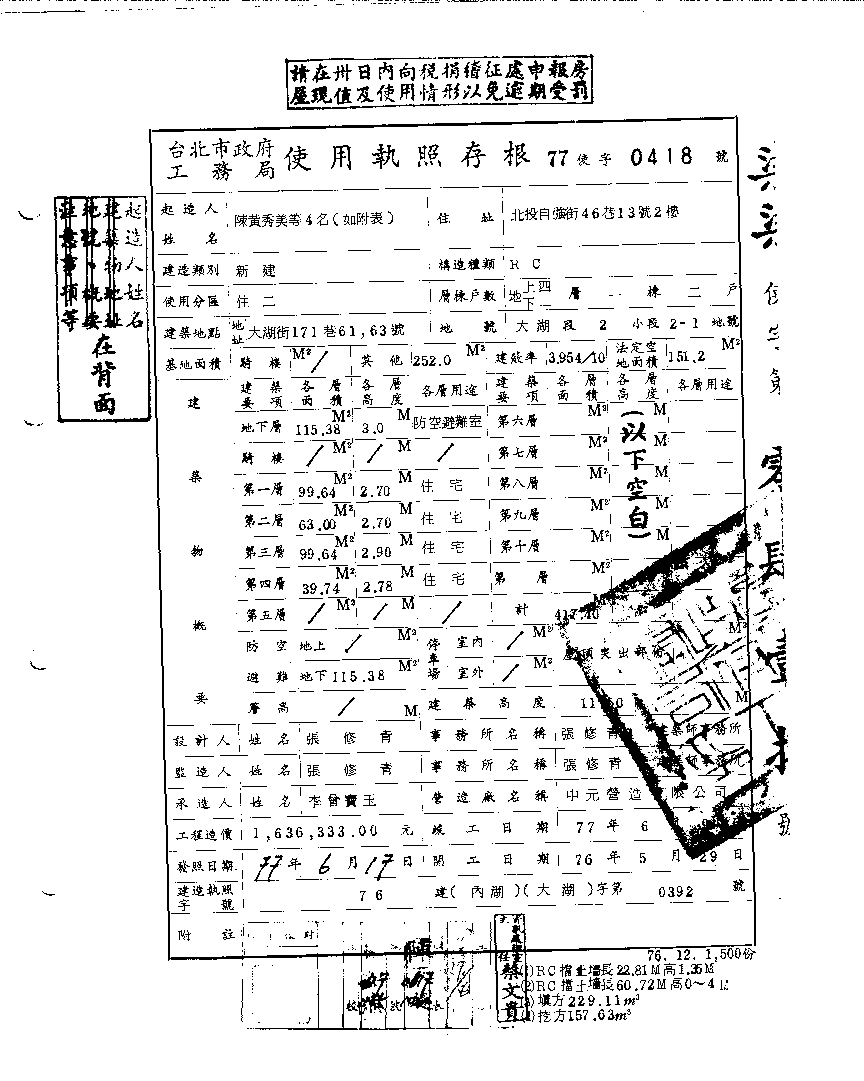 請在卅日內向稅捐稽征處申報房
屋現值及使用情形以免逾期受罰
台北市政府工務局 使用執照存根 77 使字 0418 號
起造人姓名
建築物地址
地號、概要
註意事項等
在背面
起造人姓名 陳黃秀美等4名(如附表) 住址 北投自強街46巷13號2樓
建造類別 新建 構造種類 RC
使用分區 住二 層棟戶數 地上四下 層 棟 二 戶
建築地點 地址 大湖街171巷61,63號 地號 大湖段 2 小段 2-1 地號
基地面積 騎樓 M² / 其他 252.0 M² 建蔽率 3.954/10 法定空地面積 151.2 M²
建築物概要
建築要項 各層面積 各層高度 各層用途 建築要項 各層面積 各層高度 各層用途
地下層 115.38 M² 3.0 M 防空避難室 第六層 M² M
騎樓 / M² / M / 第七層 M² M
第一層 99.64 M² 2.70 M 住宅 第八層 M² M
第二層 63.00 M² 2.70 M 住宅 第九層 M² M
第三層 99.64 M² 2.90 M 住宅 第十層 M² M
第四層 39.74 M² 2.78 M 住宅 第 層
(以下空白)
第五層 / M² / M / 計 417.40
防空 地上 / M² 停車場 室內 / M² 突出部份 M²
避難 地下 115.38 M² 室外 / M²
層高 / M 建築高度 M
設計人 姓名 張修青 事務所名稱 張修青建築師事務所
監造人 姓名 張修青 事務所名稱 張修青建築師事務所
承造人 姓名 李曾寶玉 營造廠名稱 中元營造有限公司
工程造價 1,636,333.00 元 竣工日期 77 年 6
發照日期 77 年 6 月 17 日 開工日期 76 年 5 月 29 日
建造執照字號 76 建(內湖)(大湖)字第 0392 號
附註
76.12.1,500份
蔡文貴
(1)RC擋土墻長22.81M高1.35M
(2)RC擋土墻長60.72M高0~4M
(3)填方229.11m³
(4)挖方157.63m³